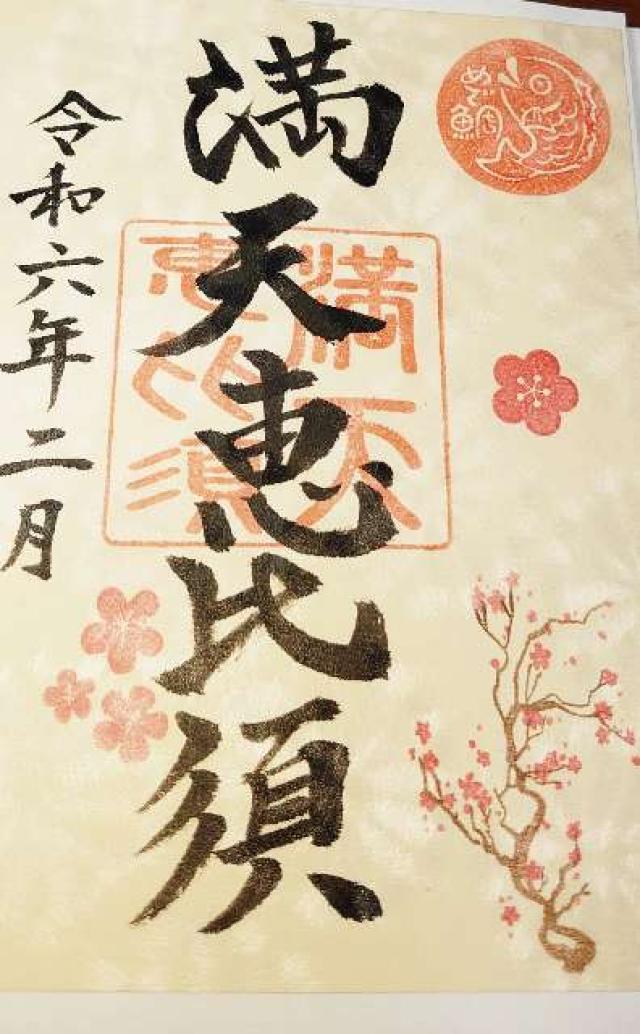 めで鯛
満天恵比須
満天
恵比須
令和六年二月